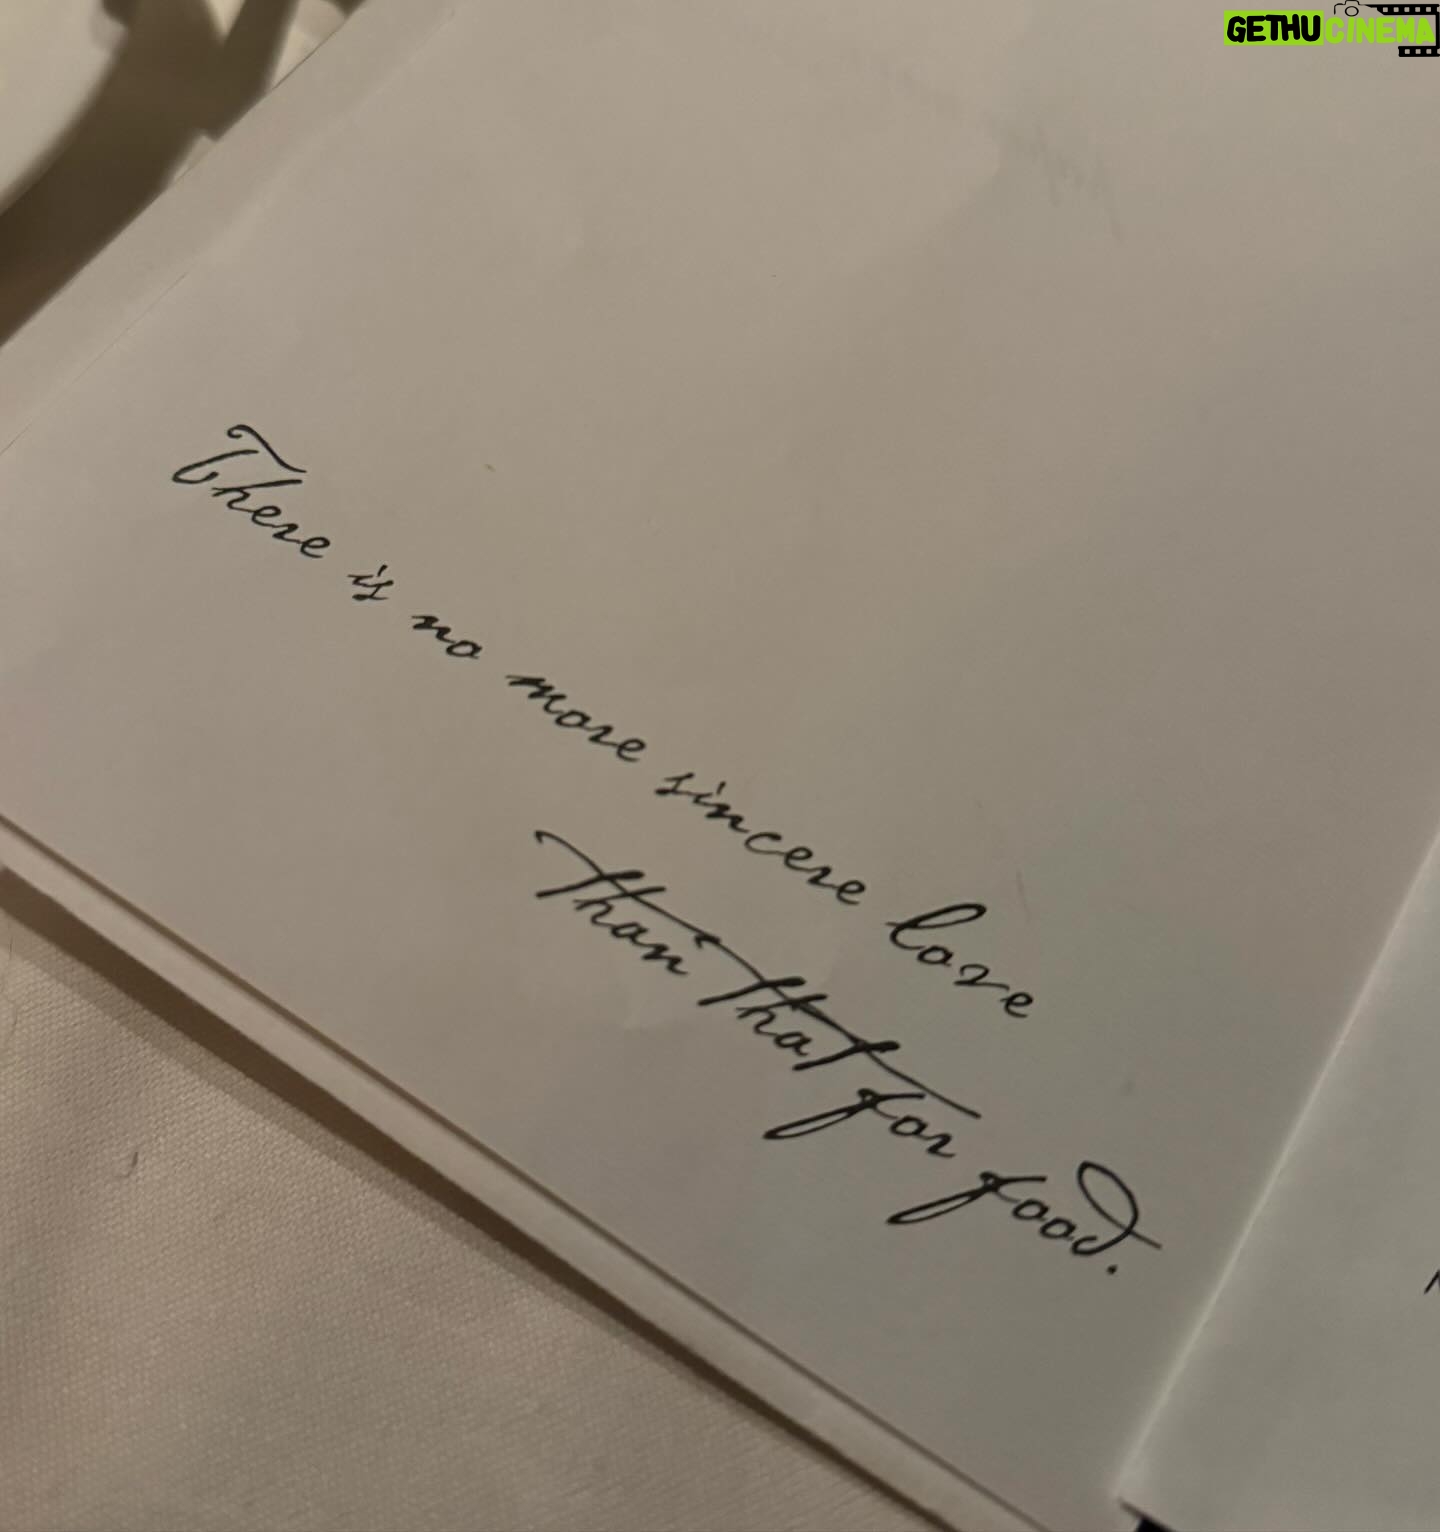 GETHUCINEMA
There is no more sincere love
than that for food.